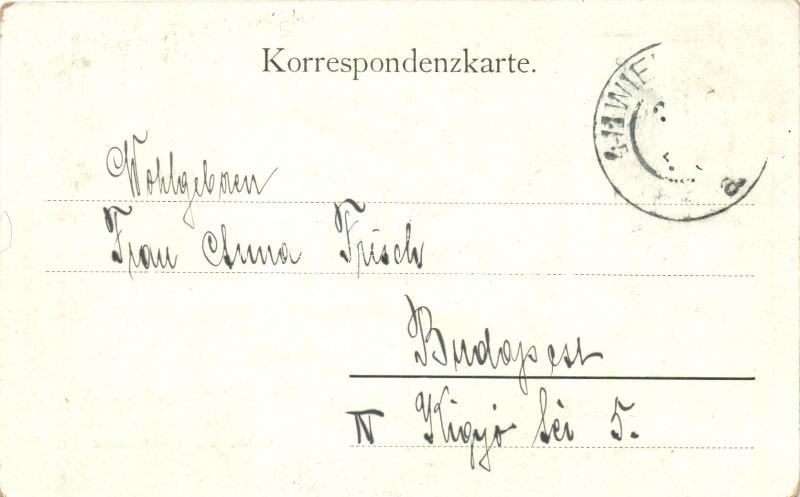 Korrespondenzkarte.
WIE
Wohlgeboren
Frau Anna Frisch
Budapest
IV Kigyó tér 5.